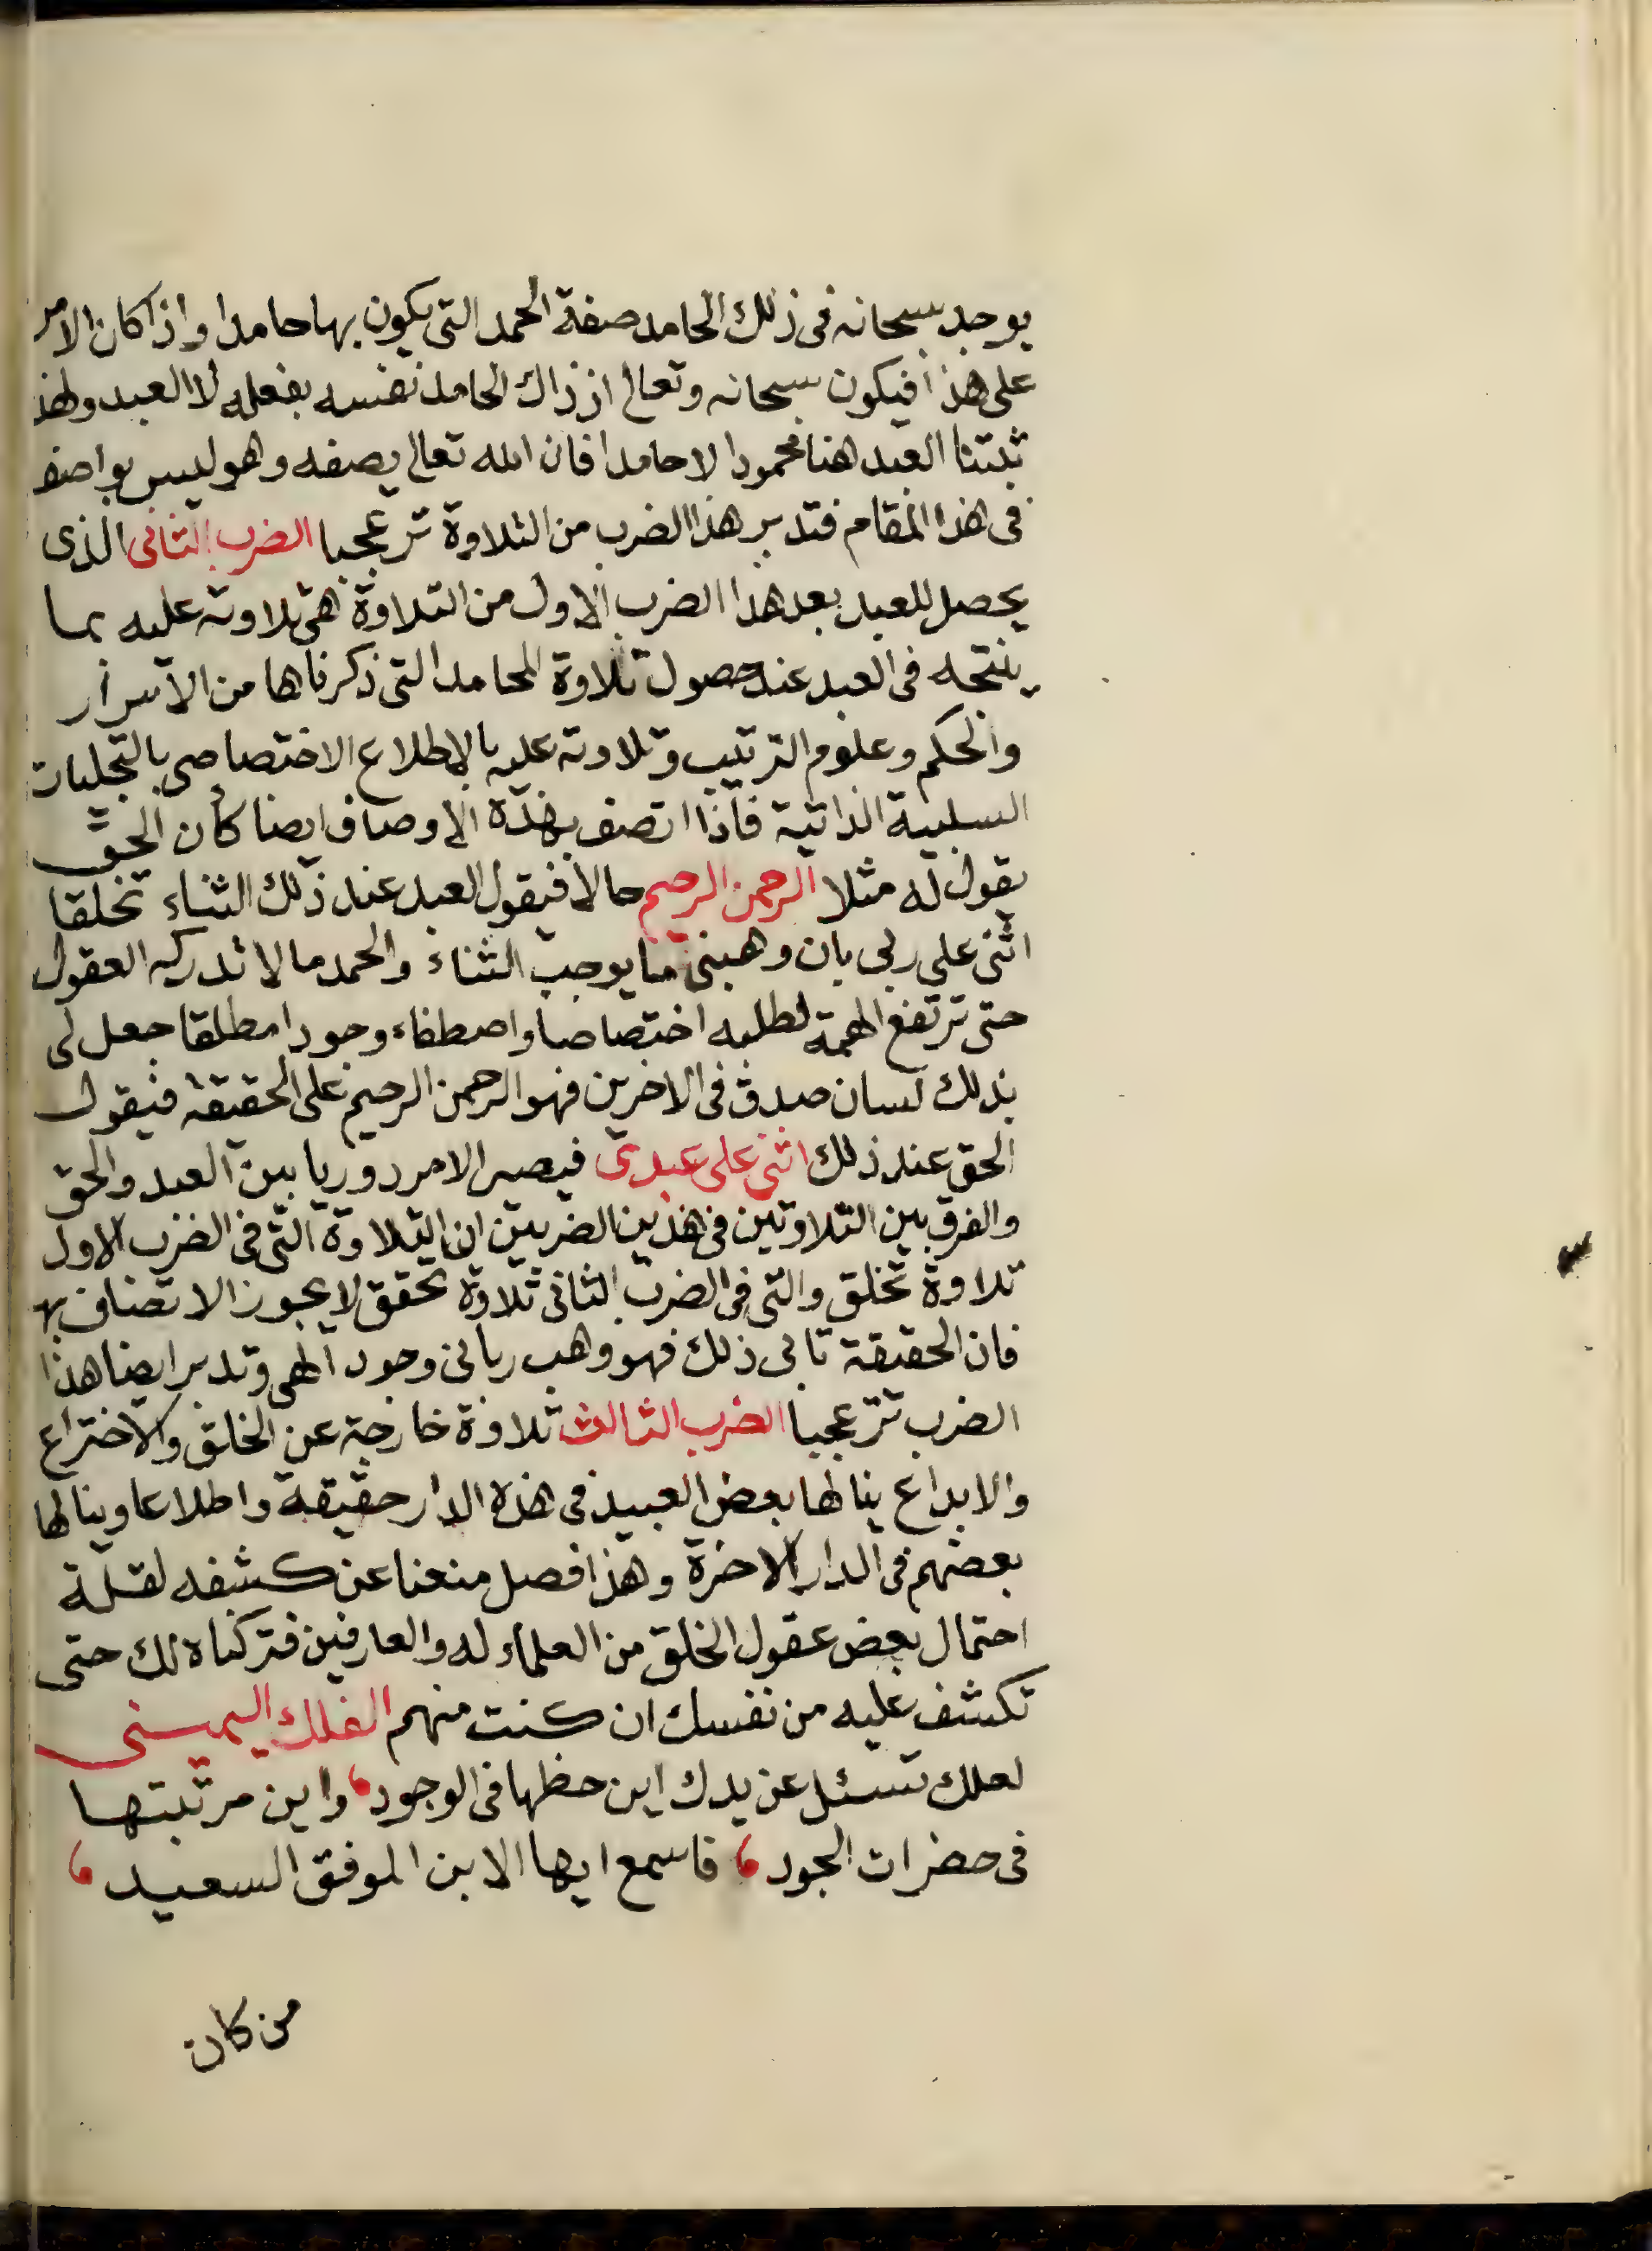 يوجد سبحانه فى ذلك الحامد صفة الحمد التى يكون بها حامدا واذا كان الامر
على هذا فيكون سبحانه وتعالى اذ ذاك الحامد نفسه بفعله لا العبد ولهذ
ثبتنا العبد هنا محمودا لا حامدا فان الله تعالى يصفه وهو ليس بواصف
فى هذا المقام فتدبر هذا الضرب من التلاوة تر عجبا الضرب الثانى الذى
يحصل للعبد بعد هذا الضرب الاول من التلاوة هى تلاوته عليه بما
ينتجه فى العبد عند حصول تلاوة المحامد التى ذكرناها من الاسرار
والحكم وعلوم الترتيب وتلاوته عليه بالاطلاع الاختصاصى بالتجليات
السلبية الذاتية فاذا اتصف بهذه الاوصاف ايضا كأن الحق
يقول له مثلا الرحمن الرحيم حالا فيقول العبد عند ذلك الثناء تخلقا
اثنى على ربى بان وهبنى ما يوجب الثناء والحمد ما لا تدركه العقول
حتى ترتفع الهمة لطلبه اختصاصا واصطفاء وجودا مطلقا جعل لى
بذلك لسان صدق فى الاخرين فهو الرحمن الرحيم على الحقيقة فيقول
الحق عند ذلك اثنى على عبدى فيصير الامر دوريا بين العبد والحق
والفرق بين التلاوتين فى هذين الضربين ان التلاوة التى فى الضرب الاول
تلاوة تخلق والتى فى الضرب الثانى تلاوة تحقق لا يجوز الاتصاف بها
فان الحقيقة تابى ذلك فهو وهب ربانى وجود الهى وتدبر ايضا هذا
الضرب تر عجبا الضرب الثالث تلاوة خارجة عن الخلق والاختراع
والابداع ينالها بعض العبيد فى هذه الدار حقيقة واطلاعا وينالها
بعضهم فى الدار الاخرة وهذا فصل منعنا عن كشفه لقلة
احتمال بعض عقول الخلق من العلماء له والعارفين فتركناه لك حتى
تكشف عليه من نفسك ان كنت منهم الفلك اليمينى
لعلك تسئل عن يدك اين حظها فى الوجود، واين مرتبتها
فى حضرات الجود، فاسمع ايها الابن الموفق السعيد،
من كان